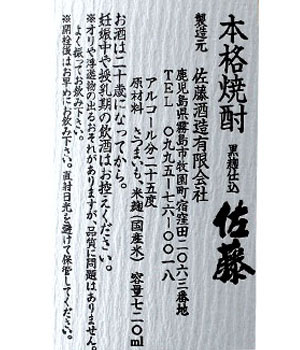 本格焼酎 黒麹仕込 佐藤
製造元 佐藤酒造有限会社
鹿児島県霧島市牧園町宿窪田二〇六三番地
TEL 〇九九五-七六-〇〇一八
アルコール分二十五度
原材料 さつまいも、米麹(国産米) 容量七二〇ml
お酒は二十歳になってから。
妊娠中や授乳期の飲酒はお控えください。
※オリや浮遊物の出るおそれがありますが、品質に問題はありません。
よく振ってお飲み下さい。
※開栓後はお早めにお飲み下さい。直射日光を避けて保管してください。